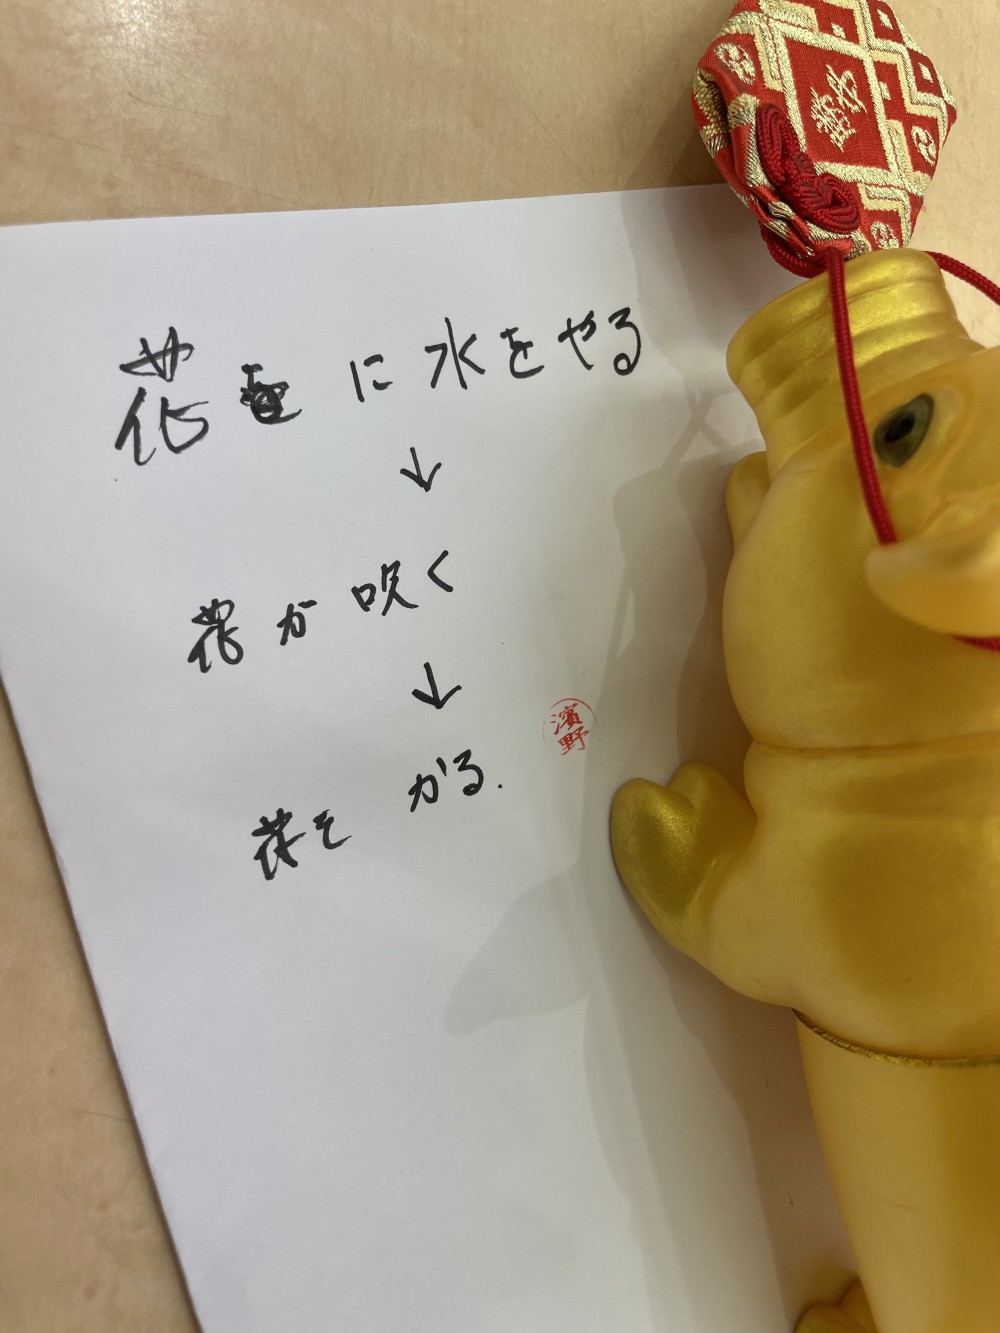 花壇に水をやる
↓
花が吹く
↓
花をかる.
濱野